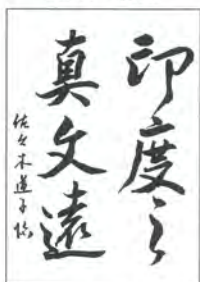 印度之
真文遠
佐々木道子臨